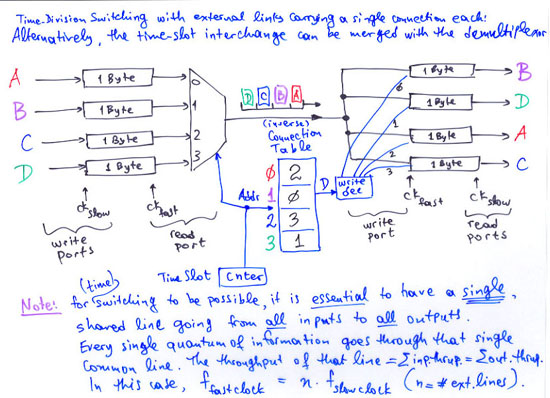 Time-Division Switching with external links carrying a single connection each:
Alternatively, the time-slot interchange can be merged with the demultiplexor
A 1 Byte 0 1 Byte B
B 1 Byte 1 D C B A 0 1 Byte D
C 1 Byte 2 (inverse) 1 1 Byte A
D 1 Byte 3 Connection Table 2 3 1 Byte C
Addr 0 2 D write dec
1 0
2 3
3 1
ck slow ck fast ck fast ck slow
write ports read port write port read ports
(time) Time Slot Cnter
Note: for switching to be possible, it is essential to have a single,
shared line going from all inputs to all outputs.
Every single quantum of information goes through that single
common line. The throughput of that line = Σinp.thrup. = Σout.thrup.
In this case, f fast clock = n · f slow clock (n = # ext. lines).